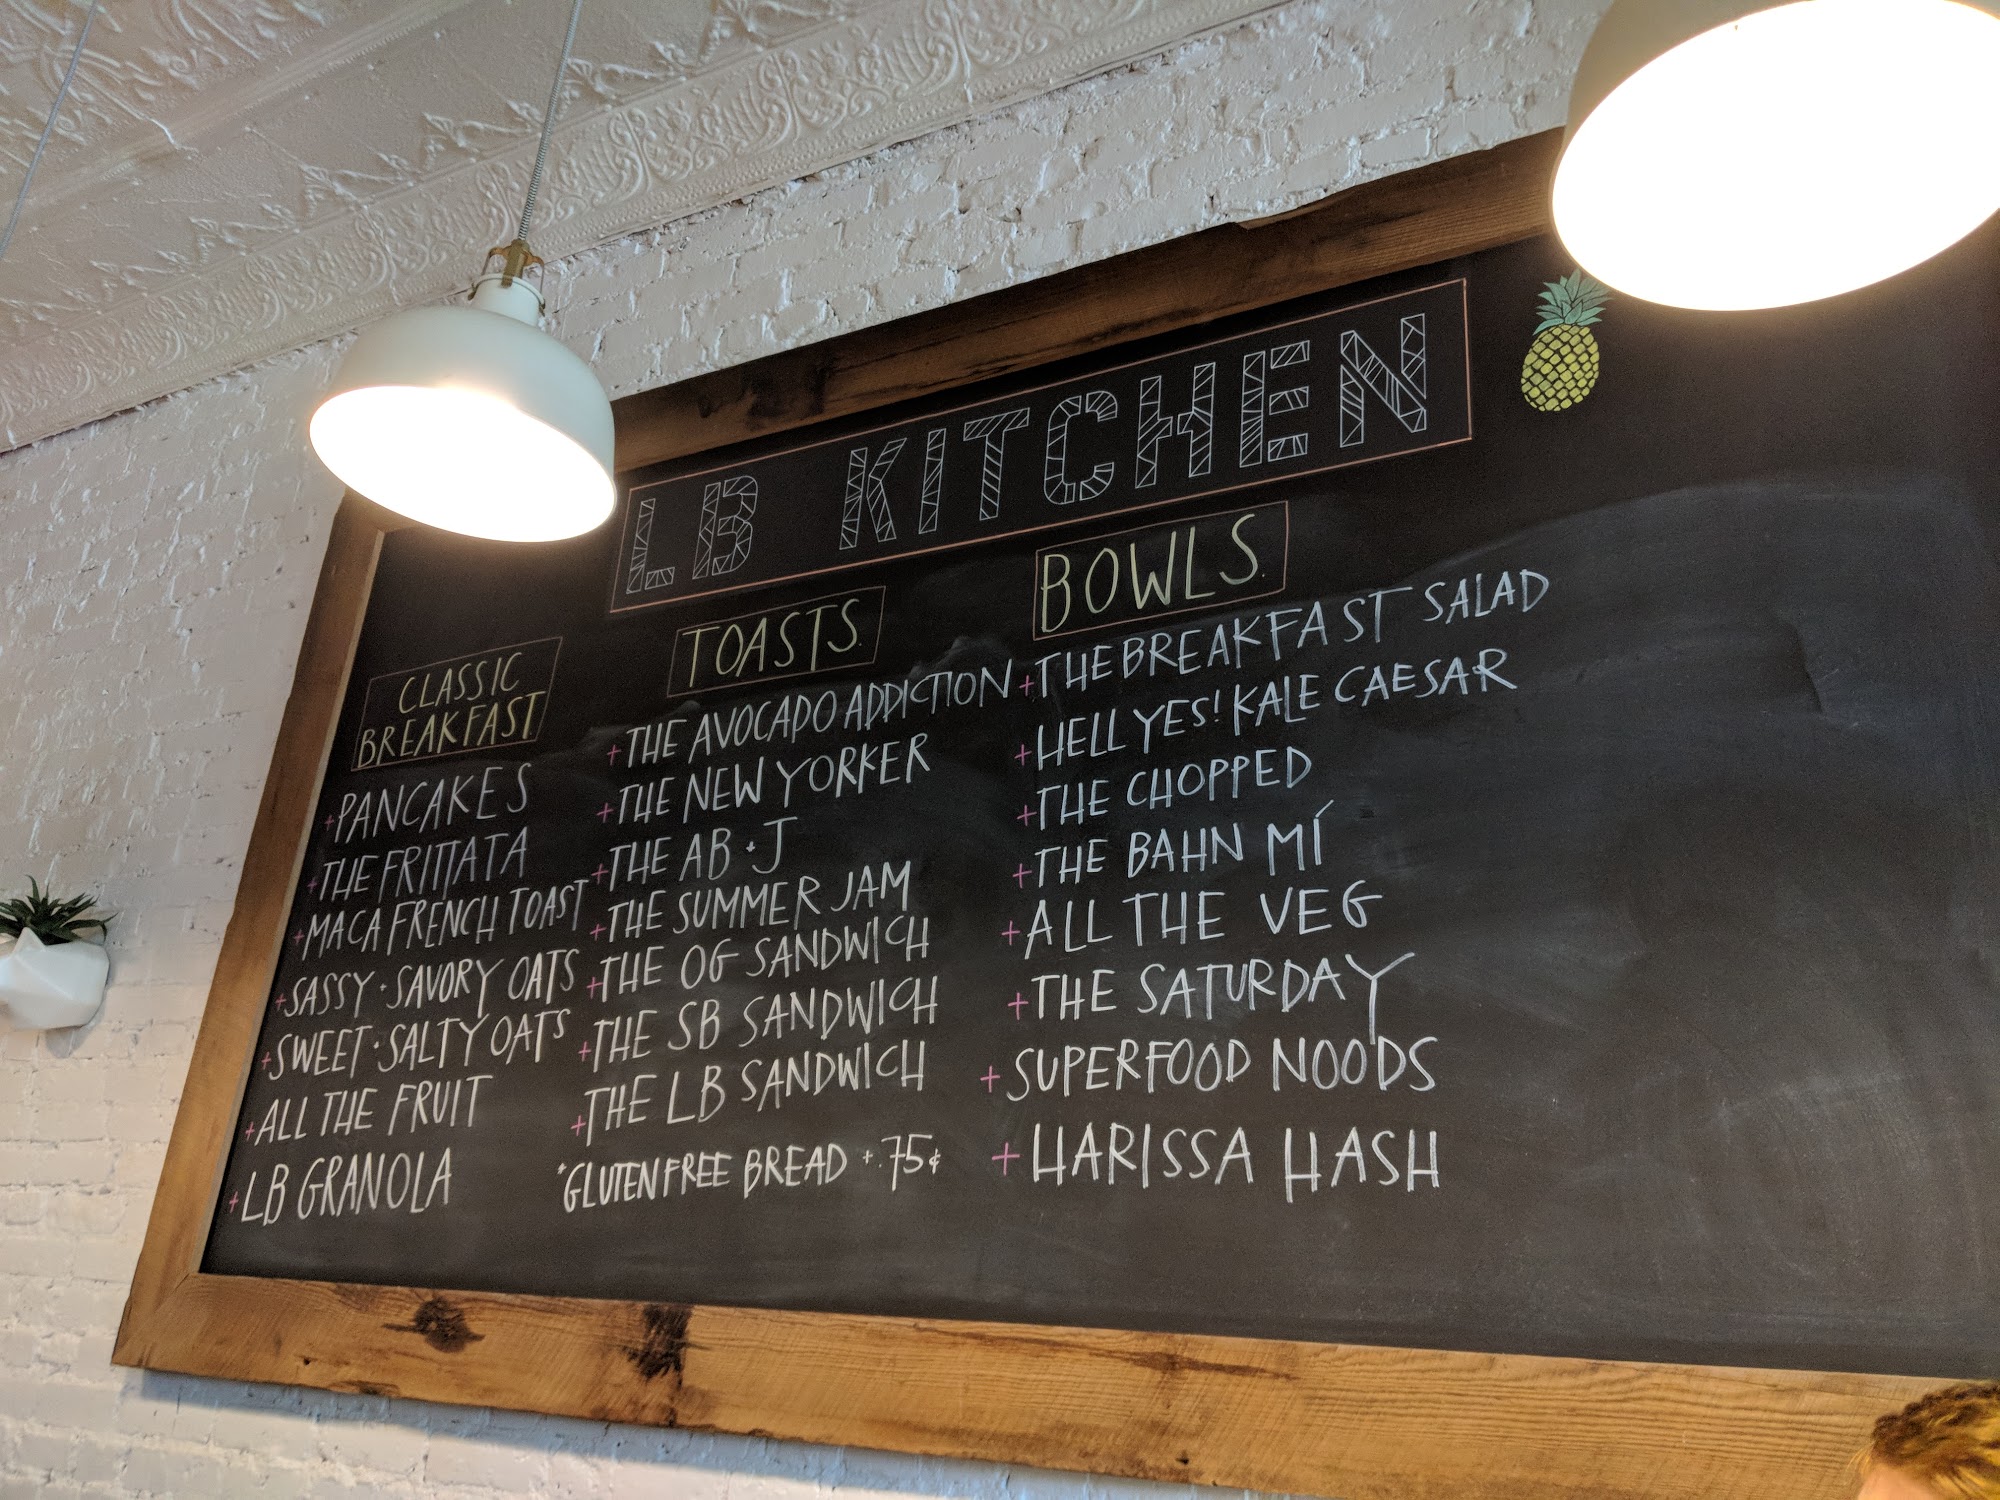 LB KITCHEN
CLASSIC
BREAKFAST
+PANCAKES
+THE FRITTATA
+MACA FRENCH TOAST
+SASSY·SAVORY OATS
+SWEET·SALTY OATS
+ALL THE FRUIT
+LB GRANOLA
TOASTS.
+THE AVOCADO ADDICTION
+THE NEW YORKER
+THE AB+J
+THE SUMMER JAM
+THE OG SANDWICH
+THE SB SANDWICH
+THE LB SANDWICH
*GLUTEN FREE BREAD +.75¢
BOWLS.
+THE BREAKFAST SALAD
+HELL YES! KALE CAESAR
+THE CHOPPED
+THE BAHN MÍ
+ALL THE VEG
+THE SATURDAY
+SUPERFOOD NOODS
+HARISSA HASH